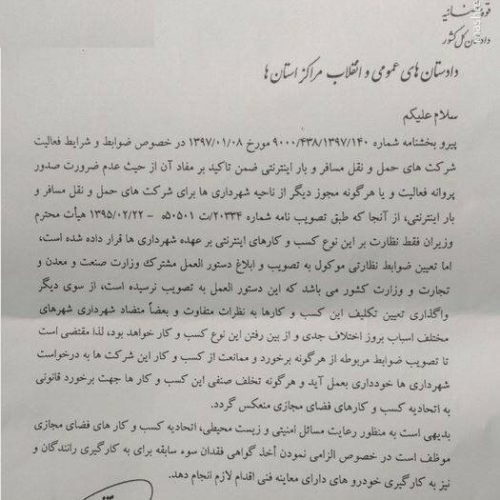 قوه قضائیه
دادستان کل کشور
دادستان های عمومی و انقلاب مراکز استان ها
سلام علیکم
پیرو بخشنامه شماره ۹۰۰۰/۴۳۸/۱۳۹۷/۱۴۰ مورخ ۱۳۹۷/۰۱/۰۸ در خصوص ضوابط و شرایط فعالیت
شرکت های حمل و نقل مسافر و بار اینترنتی ضمن تاکید بر مفاد آن از حیث عدم ضرورت صدور
پروانه فعالیت و یا هرگونه مجوز دیگر از ناحیه شهرداری ها برای شرکت های حمل و نقل مسافر و
بار اینترنتی، از آنجا که طبق تصویب نامه شماره ۲۰۳۳۴/ت ۵۰۵۰۱ه - ۱۳۹۵/۰۲/۲۲ هیأت محترم
وزیران فقط نظارت بر این نوع کسب و کارهای اینترنتی بر عهده شهرداری ها قرار داده شده است،
اما تعیین ضوابط نظارتی موکول به تصویب و ابلاغ دستور العمل مشترك وزارت صنعت و معدن و
تجارت و وزارت کشور می باشد که این دستور العمل به تصویب نرسیده است، از سوی دیگر
واگذاری تعیین تکلیف این کسب و کارها به نظرات متفاوت و بعضاً متضاد شهرداری شهرهای
مختلف اسباب بروز اختلاف جدی و از بین رفتن این نوع کسب و کار خواهد بود، لذا مقتضی است
تا تصویب ضوابط مربوطه از هرگونه برخورد و ممانعت از کسب و کار این شرکت ها به درخواست
شهرداری ها خودداری بعمل آید و هرگونه تخلف صنفی این کسب و کار ها جهت برخورد قانونی
به اتحادیه کسب و کارهای فضای مجازی منعکس گردد.
بدیهی است به منظور رعایت مسائل امنیتی و زیست محیطی، اتحادیه کسب و کار های فضای مجازی
موظف است در خصوص الزامی نمودن أخذ گواهی فقدان سوء سابقه برای به کارگیری رانندگان و
نیز به کارگیری خودرو های دارای معاینه فنی اقدام لازم انجام دهد.